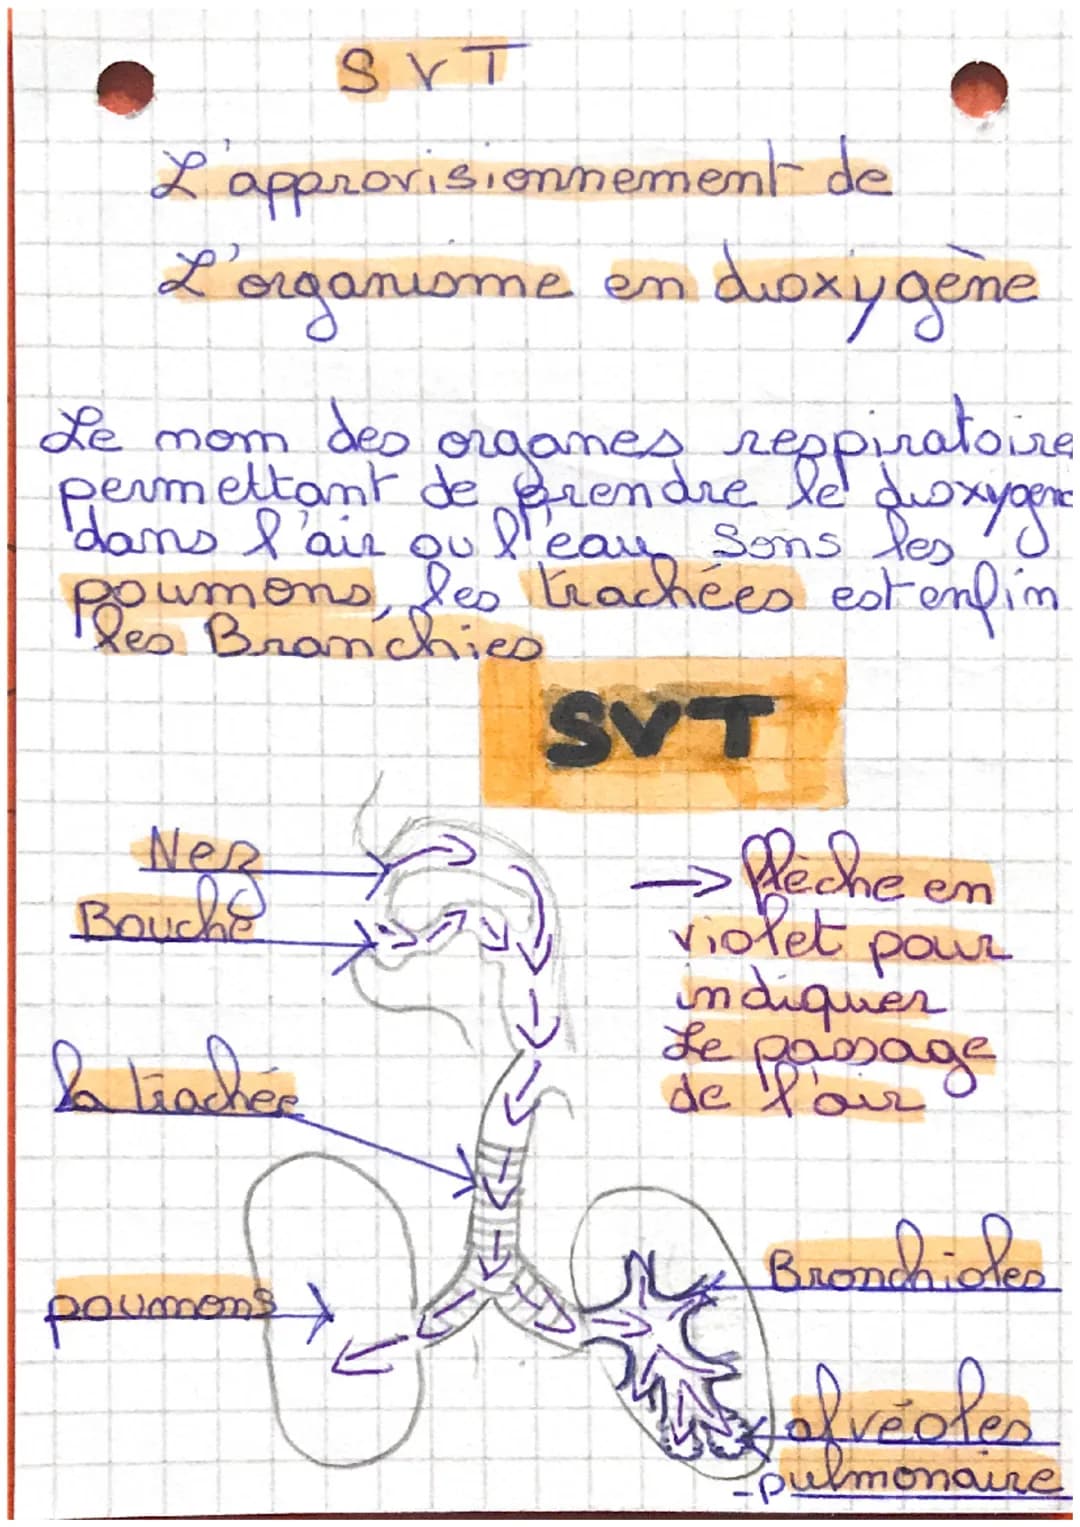 SVT
L'approvisionnement de
L'organisme en dioxygène
Le nom des organes respiratoire
permettant de prendre le dioxygene
dans l'air ou l'eau sons les
poumons, les trachées est enfin
les Branchies
SVT
Nez
Bouche
→ flèche en
violet pour
indiquer
Le passage
de l'air
la trachée
Bronchioles
poumons
alvéoles
-pulmonaire